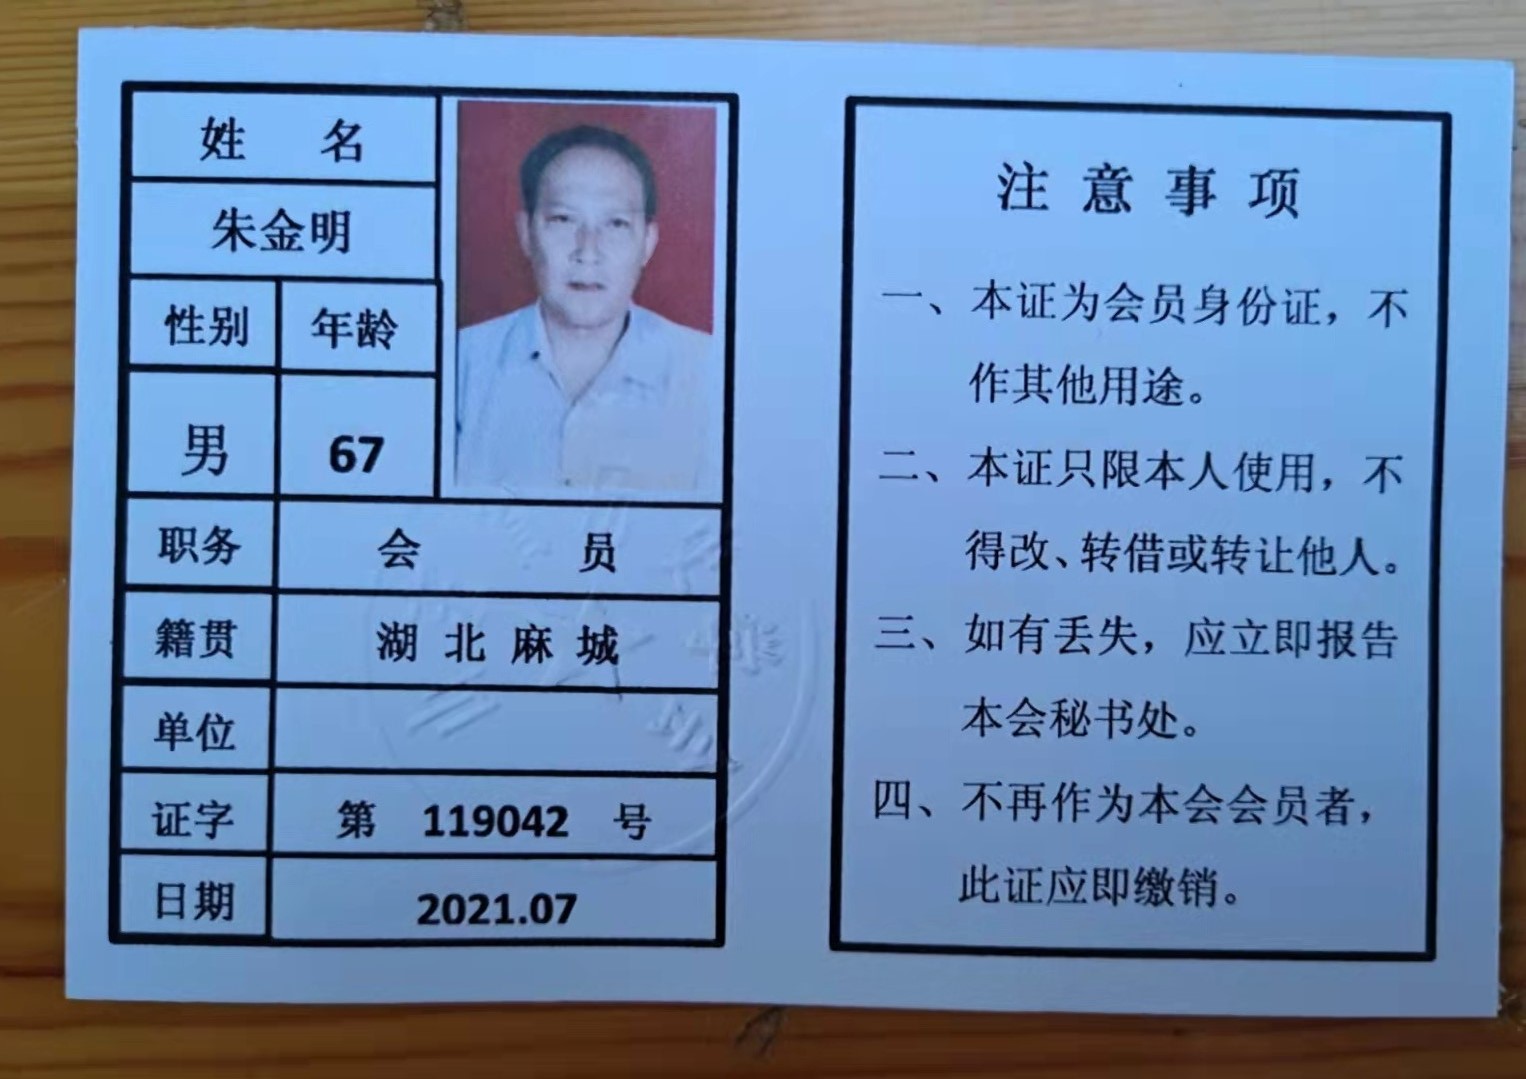 姓 名
朱金明
性别 年龄
男 67
职务 会 员
籍贯 湖北麻城
单位
证字 第 119042 号
日期 2021.07
注意事项
一、本证为会员身份证，不
作其他用途。
二、本证只限本人使用，不
得改、转借或转让他人。
三、如有丢失，应立即报告
本会秘书处。
四、不再作为本会会员者，
此证应即缴销。